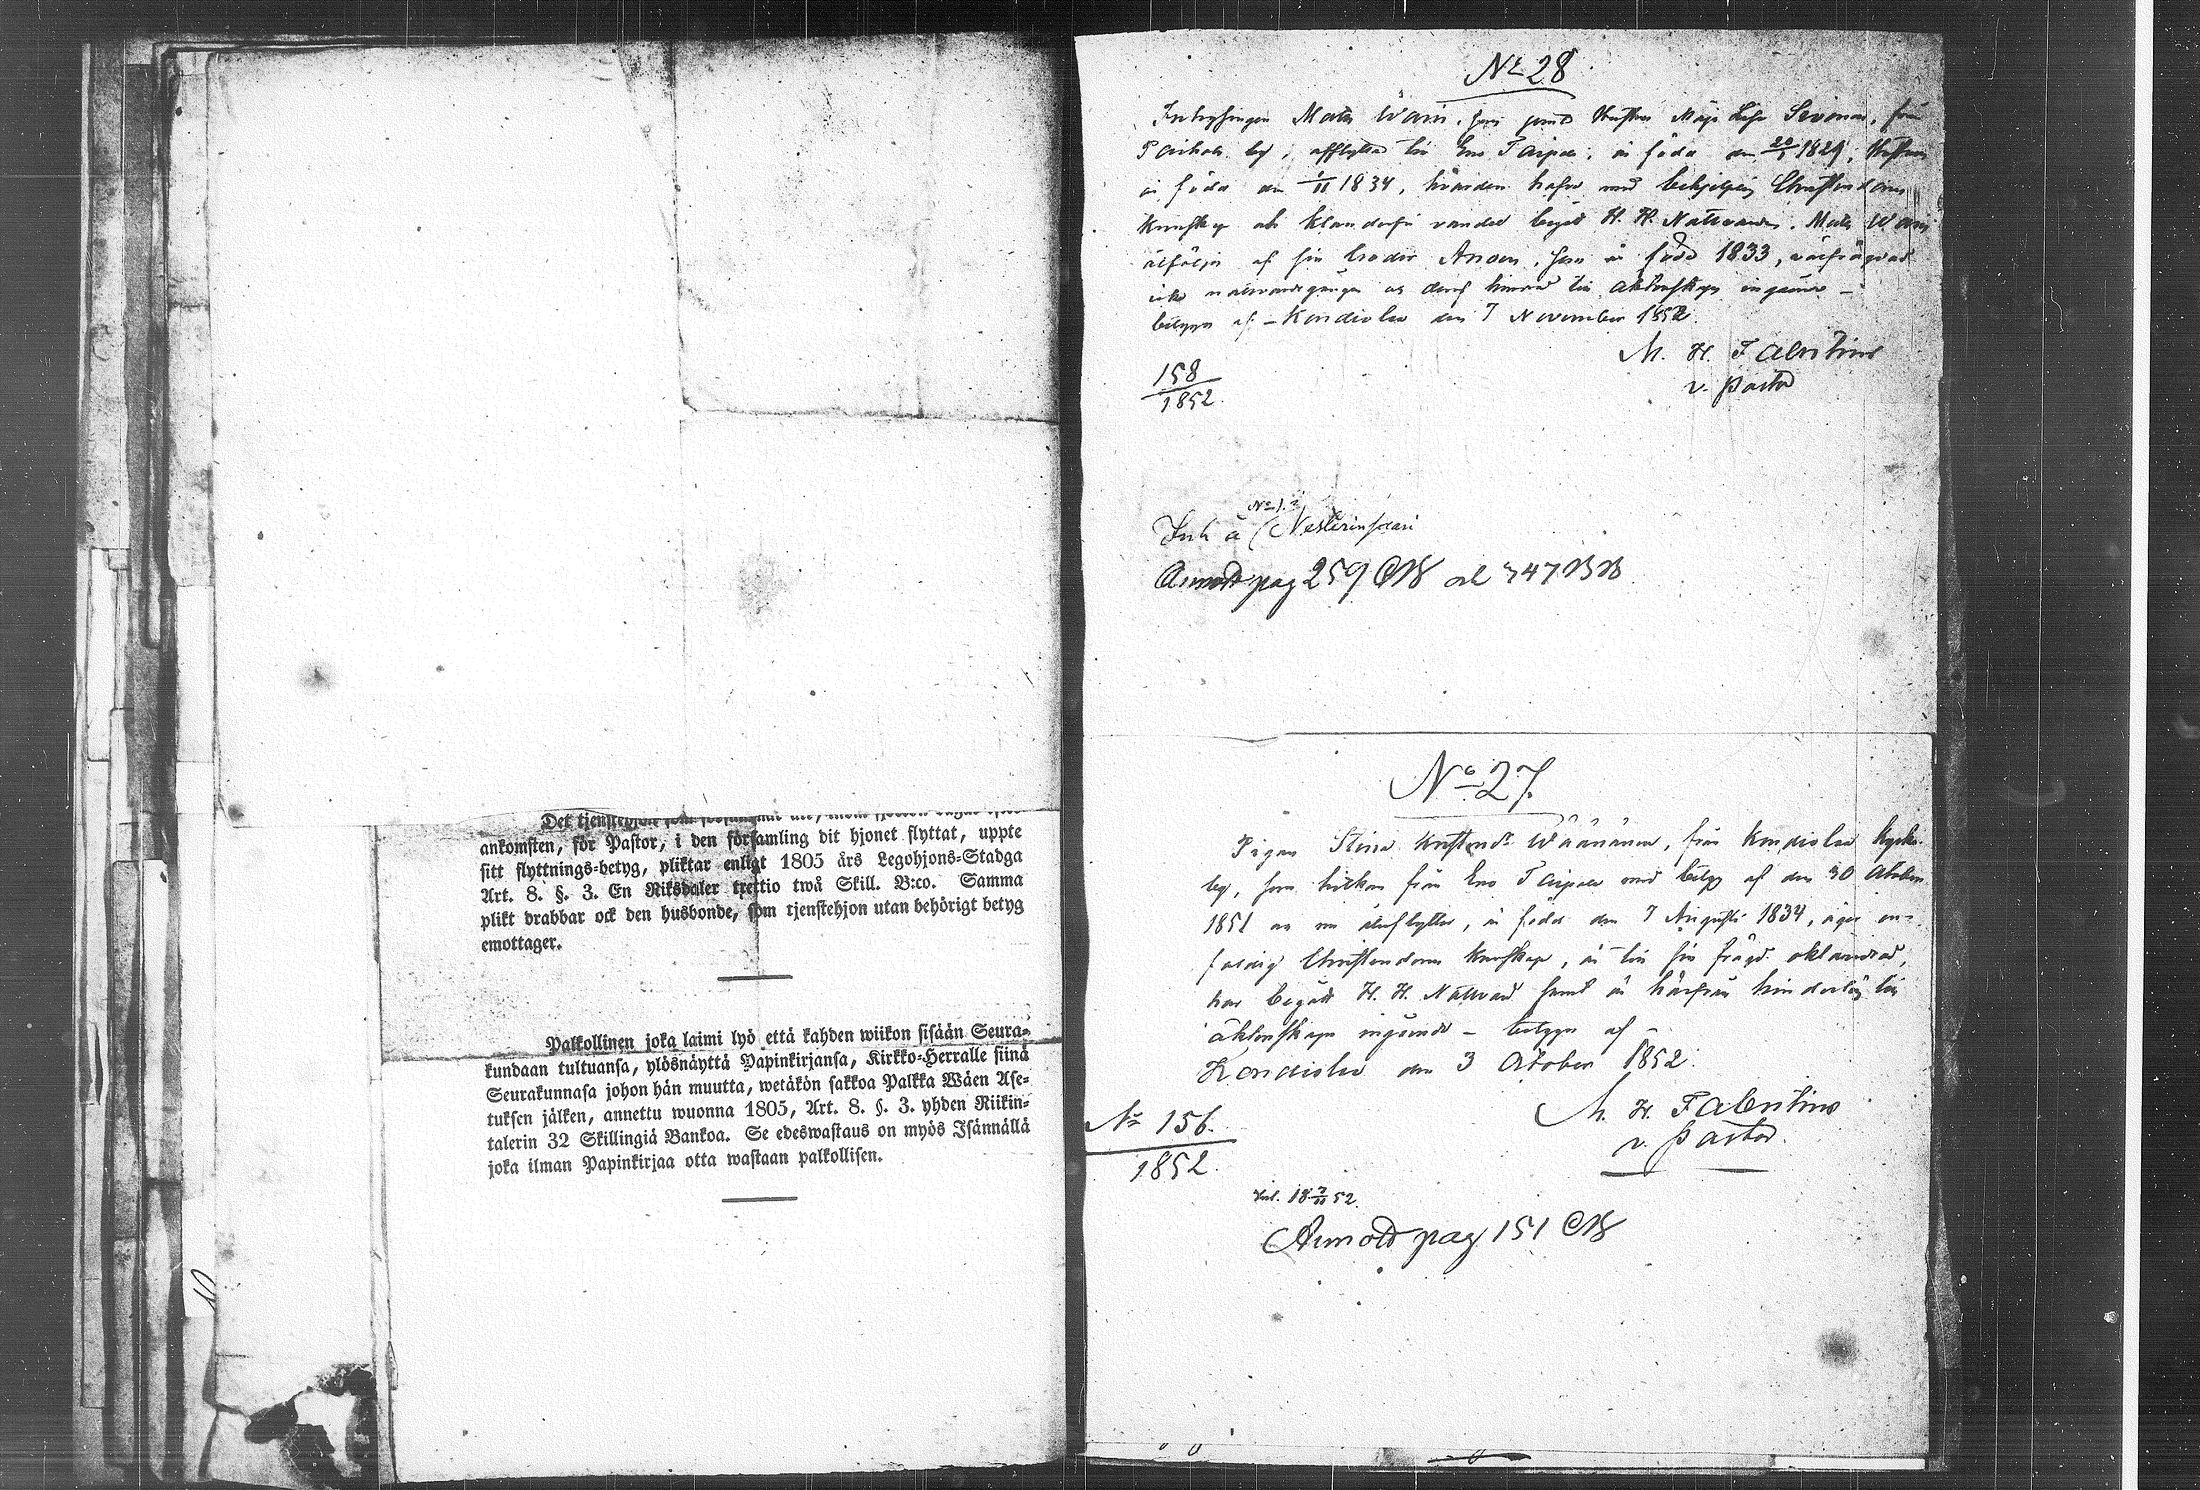 Det tjenstehjon som
ankomsten, för Pastor, i den församling dit hjonet flyttat, uppte
sitt flyttnings-betyg, pliktar enligt 1805 års Legohjons-Stadga
Art. 8. §. 3. En Riksdaler trettio twå Skill. B:co. Samma
plikt drabbar ock den husbonde, som tjenstehjon utan behörigt betyg
emottager.
Palkollinen joka laimi lyö että kahden wiikon sisään Seura-
kundaan tultuansa, ylösnäyttä Papinkirjansa, Kirkko-Herralle siinä
Seurakunnasa johon hän muutta, wetäkön sakkoa Palkka Wäen Ase-
tuksen jälken, annettu wuonna 1805, Art. 8. §. 3. yhden Riikin-
talerin 32 Skillingiä Bankoa. Se edeswastaus on myös Isännällä
joka ilman Papinkirjaa otta wastaan palkollisen.
10
No 28
Inhysingen Mats Wäri, som jemte Hustru Maja Lisa Sivonen, från
by, afflyttar till Eno Taipale, är född den 1829, Hustrun
är född den 1/11 1834, hvardera hafva med behjelplig Christendoms
kunskap och klanderfri vandel begått H. H. Nattvarden. Mats Wäri
åtföljes af sin broder Anders, som är född 1833, välfrägdad
icke nattvardsgången och derför hindrad till äktenskaps ingående –
betygar af – Kondiolax den 7 November 1852.
M. H. Falentine
v. Pastor
158
1852.
Inh å Nesterinsaari
Anmält pag 259 CB
No 27.
Pigan Stina Kristersdr Wäänänen, från Kondiolax kyrko-
by, som hitkom från Eno Taipale med betyg af den 30 Oktober
1851 och nu återflyttar, är född den 7 Augusti 1834, äger en-
faldig Christendoms kunskap, är till sin frägd oklandrad,
har begått H. H. Nattvard samt är härifrån hinderlös till
äktenskaps ingående – betygar af –
Kondiolax den 3 Oktober 1852.
M. H. Falentine
v. Pastor.
No 156.
1852.
Inl. 18 7/11 52.
Anmält pag 151 CB